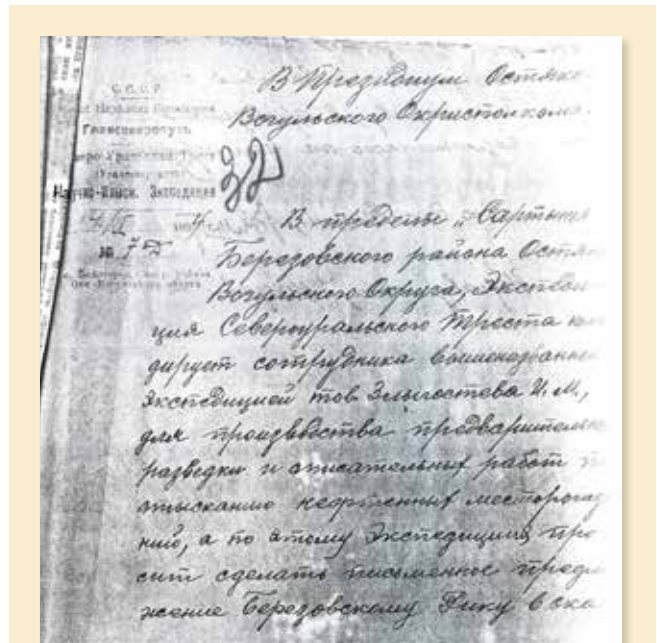 С.С.С.Р
Главсеверопуть
Научно-Изыск. Экспедиция
№ 72
32
В Президиум Остяко
Вогульского Окрисполкома.
В пределы „Сартынья
Березовского района Остяко
Вогульского Округа, Экспеди
ция Североуральского Треста ком
дирует сотрудника вышеназванной
Экспедицией тов. Эльгостева И. М.,
для производства предварительной
разведки и описательных работ по
отысканию нефтенных месторожд
ний, а по этому Экспедиция про
сит сделать письменное предло
жение Березовскому Рику в ока